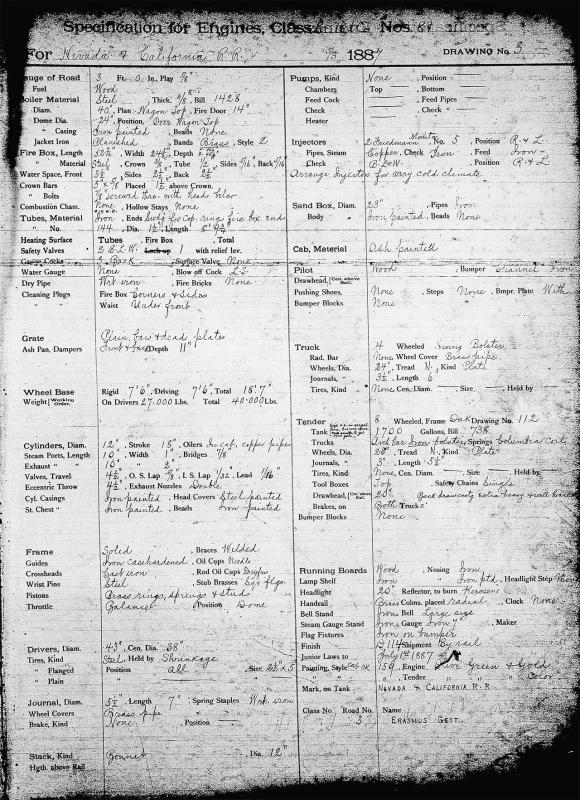 Specification for Engines, Class Nos.
For Nevada & California R.R. 1887 DRAWING No. 3
Gauge of Road 3 Ft. 0 In., Play 5/8
Fuel Wood
Boiler Material Steel, Thick. Bill 1428
Diam. 40", Plan Wagon Top, Fire Door 14"
Dome Dia. 24", Position, Over Wagon Top
" Casing Iron painted, Beads None
Jacket Iron Planished, Bands Brass, Style 2
Fire Box, Length Width Depth
" Material Steel, Crown 3/8 Tube 1/2 Sides 5/16, Back 5/16
Water Space, Front Sides 2½" Back 2½"
Crown Bars Placed 1½ above Crown.
" Bolts 7/8 screwed thro. with head below
Combustion Cham. None, Hollow Stays None
Tubes, Material Iron, Ends Swdg for Cop. rings fire box end
" No. 144, Dia. 1½, Length
Heating Surface Tubes Fire Box Total
Safety Valves 2 B.L.W. Lock-up 1 with relief lev.
Gauge Cocks 3 Surface Valve None
Water Gauge None, Blow off Cock L.S.
Dry Pipe Wrt iron, Fire Bricks None
Cleaning Plugs Fire Box Corners & Sides
" " Waist Under front
Grate Plain bars & dead plates
Ash Pan, Dampers Front & back Depth 11"
Wheel Base Rigid 7'6", Driving 7'6", Total 18'7"
Weight (Working Order.) On Drivers 27.000 Lbs. Total 40.000 Lbs.
Cylinders, Diam. 12", Stroke 18", Oilers In cab, copper pipes
Steam Ports, Length 10", Width 1", Bridges 7/8
Exhaust " " 10" " 2"
Valves, Travel 4½", O. S. Lap 5/8, I. S. Lap 1/32, Lead 1/16"
Eccentric Throw 4½", Exhaust Nozzles Double
Cyl. Casings Iron painted, Head Covers Steel painted
St. Chest " Iron painted, Beads Iron painted
Frame Solid, Braces Welded
Guides Iron casehardened, Oil Cups Needle
Crossheads Cast iron Rod Oil Cups Dreyfus
Wrist Pins Steel Stub Brasses
Pistons Brass rings, springs & studs
Throttle Balance Position Dome
Drivers, Diam. 43", Cen. Dia. 38"
Tires, Kind Steel Held by Shrinkage
" Flanged Position All Size 2½ x 5
" Plain
Journal, Diam. 5½", Length 7" Spring Staples Wrt. iron
Wheel Covers Brass pipe
Brake, Kind None Position
Stack, Kind Bonnet, Dia. 12"
Hgth. above Rail
Pumps, Kind None, Position
Chambers Top Bottom
Feed Cock Feed Pipes
Check " Check
Heater
Injectors 2 Friedmann Monitor No. 5 Position R & L
Pipes, Steam Copper, Check Iron Feed Iron
Check B.L.W. Position R & L
Arrange Injectors for very cold climate
Sand Box, Diam. 23", Pipes Iron
Body Iron painted. Beads None
Cab, Material Ash painted
Pilot Wood, Bumper Channel Iron
Drawhead,
Pushing Shoes, None, Steps None, Bmpr. Plate With
Bumper Blocks None
Truck 4 Wheeled Swing Bolster
Rad. Bar None Wheel Cover Brass pipe
Wheels, Dia. 24", Tread N., Kind Plate
Journals, " 3½", Length 6
Tires, Kind None, Cen. Diam. Size Held by
Tender 8 Wheeled, Frame Oak Drawing No. 112
Tank 1700 Gallons, Bill 738
Trucks And bar Iron bolster, Springs Columbia Coil
Wheels, Dia. Tread N. Kind Plate
Journals, " 3", Length 5½
Tires, Kind None, Cen. Diam. Size Held by
Tool Boxes Top Safety Chains Single
Drawhead,
Brakes, on Both Trucks
Bumper Blocks None
Running Boards Wood, Nosing Iron
Lamp Shelf Iron Iron ptd, Headlight Step
Headlight 20" Reflector, to burn Kerosene
Handrail Brass Colmns. placed radial, Clock None
Bell Stand Iron, Bell Large size
Steam Gauge Stand Iron, Gauge Iron 7" Maker
Flag Fixtures Iron on bumper
Finish Shipment By rail
Junior Laws to July 1st 1887
Painting, Style 159, Engine Olive Green & Gold
" , Tender " " Color
Mark, on Tank NEVADA & CALIFORNIA R.R
Class No. Road No. Name
3 ERASMUS GEST